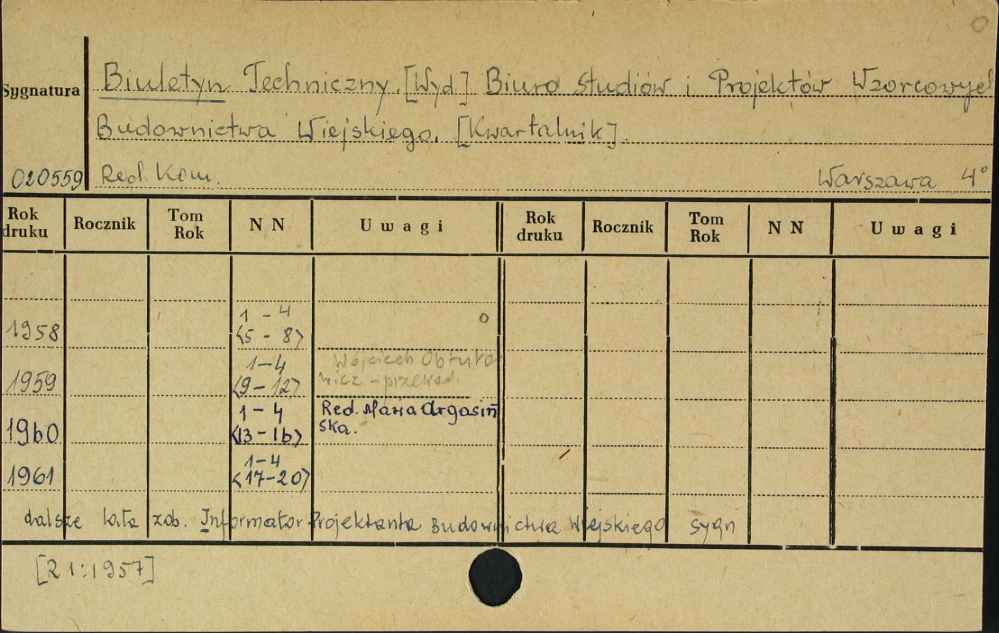 Sygnatura
Biuletyn Techniczny. [Wyd] Biuro Studiów i Projektów Wzorcowych
Budownictwa Wiejskiego. [Kwartalnik].
020559 Red. Kom. Warszawa 4°
Rok druku Rocznik Tom Rok N N Uwagi Rok druku Rocznik Tom Rok N N Uwagi
1958 1-4 <5-8>
1959 1-4 <9-12> Wojciech
1960 1-4 <13-16> Red. Maria Argasińska.
1961 1-4 <17-20>
dalsze lata zob. Informator Projektanta Budownictwa Wiejskiego sygn
[R 1:1957]